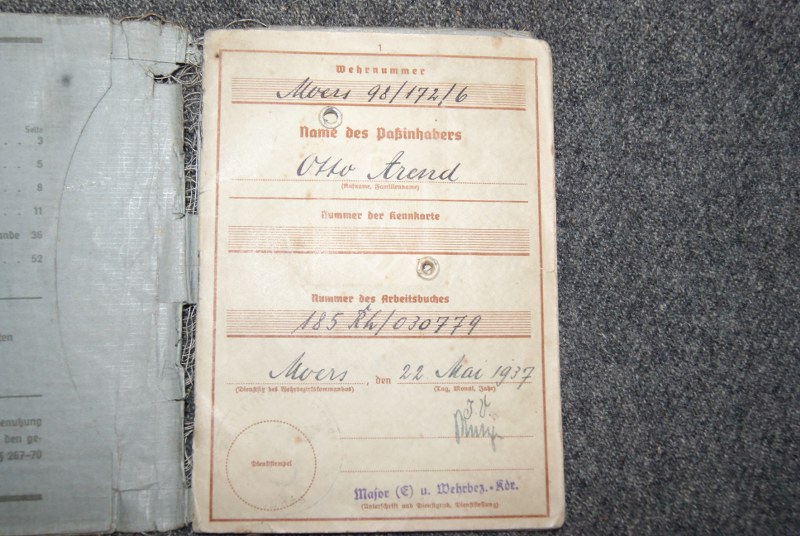 Seite
. . 3
. . 5
. . 8
. . 11
unde 36
. . 52
ten
enutzung
den ge-
§ 267–70
1
Wehrnummer
Moers 98/172/6
Name des Paßinhabers
Otto Arend
(Rufname, Familienname)
Nummer der Kennkarte
Nummer des Arbeitsbuches
185 Rh/030779
Moers, den 22 Mai 1937
(Dienstsitz des Wehrbezirkskommandos) (Tag, Monat, Jahr)
J. V.
Dienststempel
Major (E) u. Wehrbez.-Kdr.
(Unterschrift und Dienstgrad, Dienststellung)